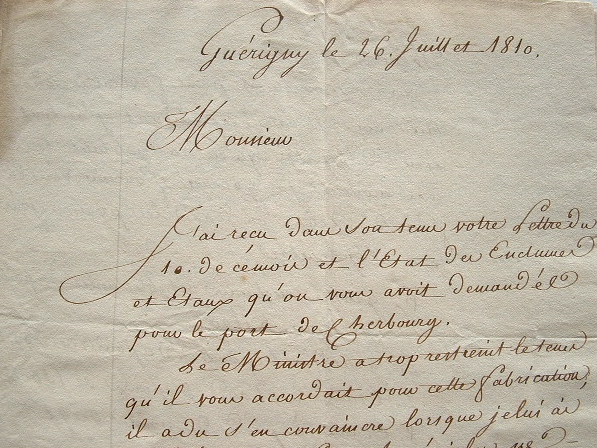 Guérigny le 26. Juillet 1810.
Monsieur
J'ai reçu dans son tems votre Lettre du
10. de cémois et l'Etat des Enclumes
et Etaux qu'on vous avoit demandées
pour le port de Cherbourg.
Le Ministre a trop restreint le tems
qu'il vous accordait pour cette fabrication,
il a du s'en convaincre lorsque je lui ai